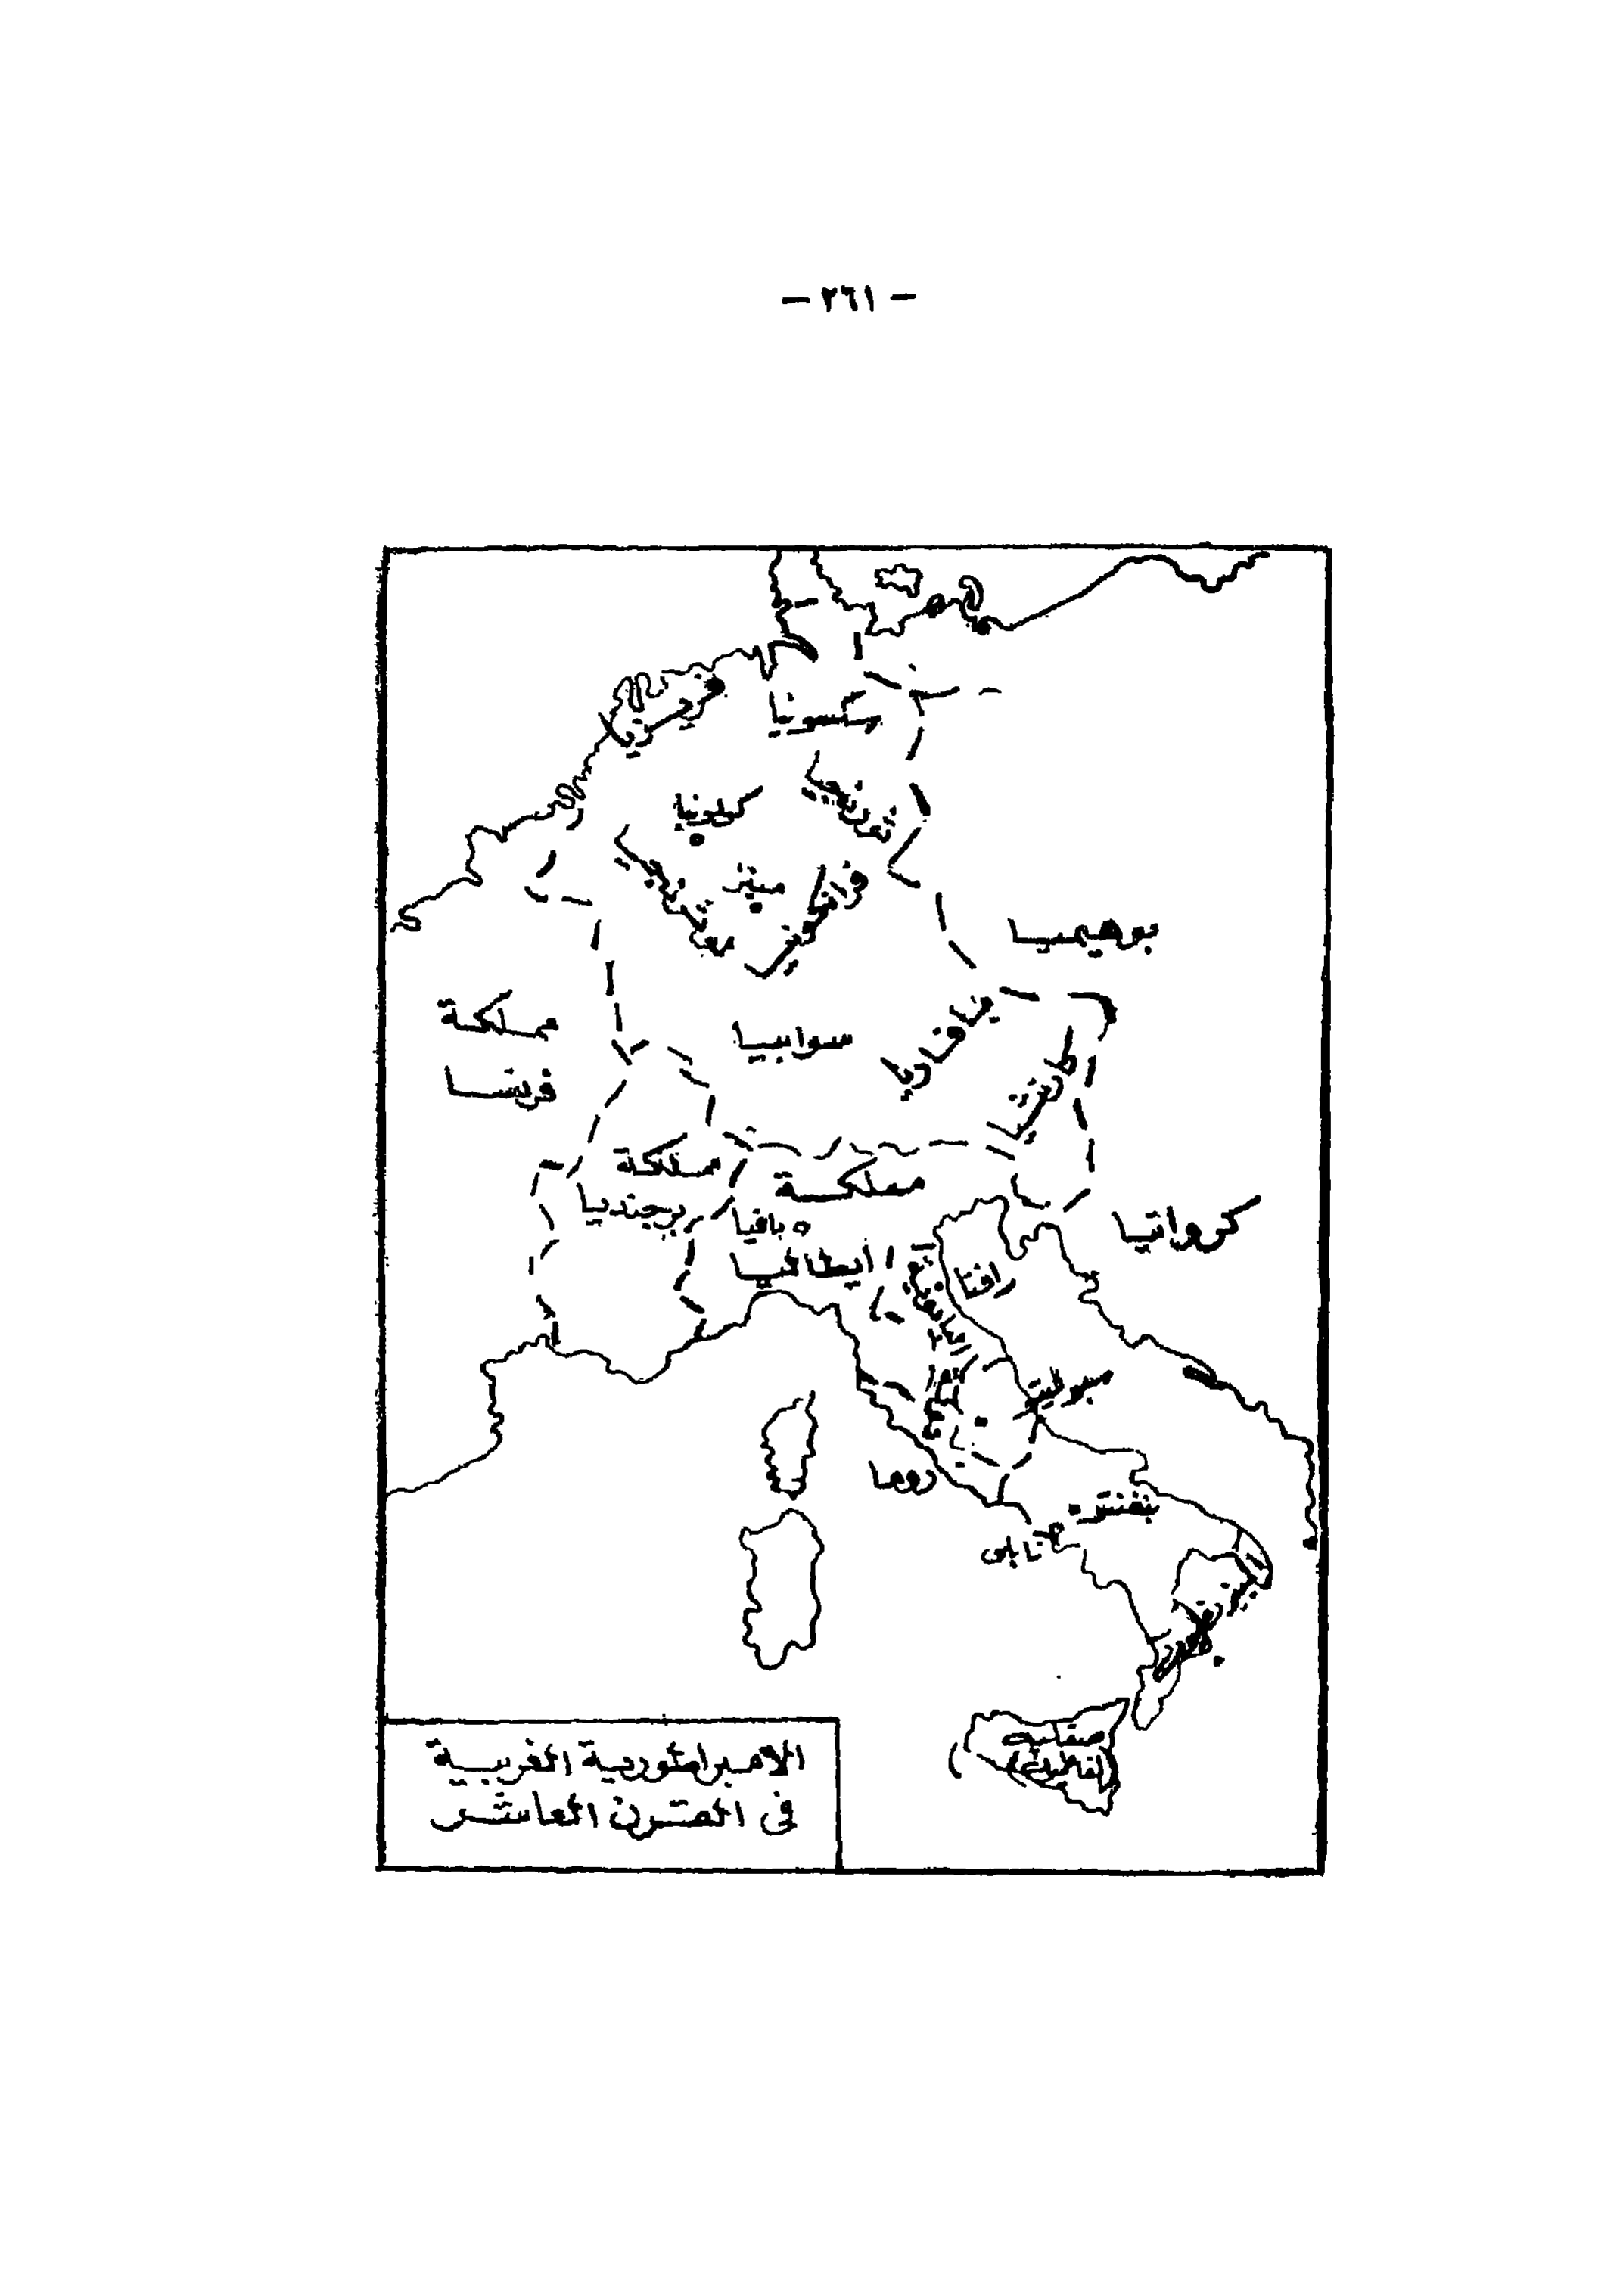 — ٢٦١ —
سكسونيا
فريزيا
ثورنجيا
كولونيا
مينز
فرانكونيا
لوثرنجيا
بوهيميا
مملكة
فرنسا
سوابيا
بافاريا
كارنثيا
مملكة
برجنديا
مملكة
بافيا
ايطاليا
كرواتيا
رافنا
سبوليتو
روما
بنفنتو
نابلى
صقلية
الامبراطورية الغربية
فى القرن العاشر